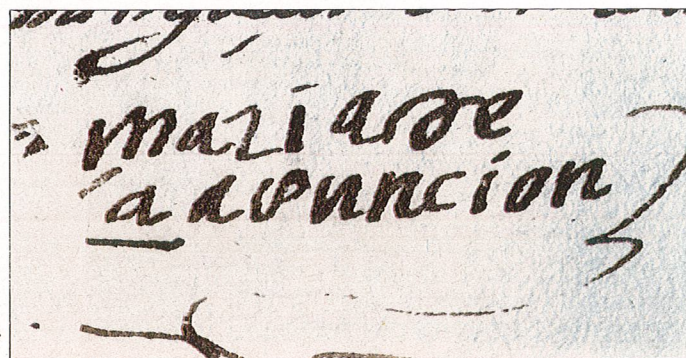 maria de
la asuncion